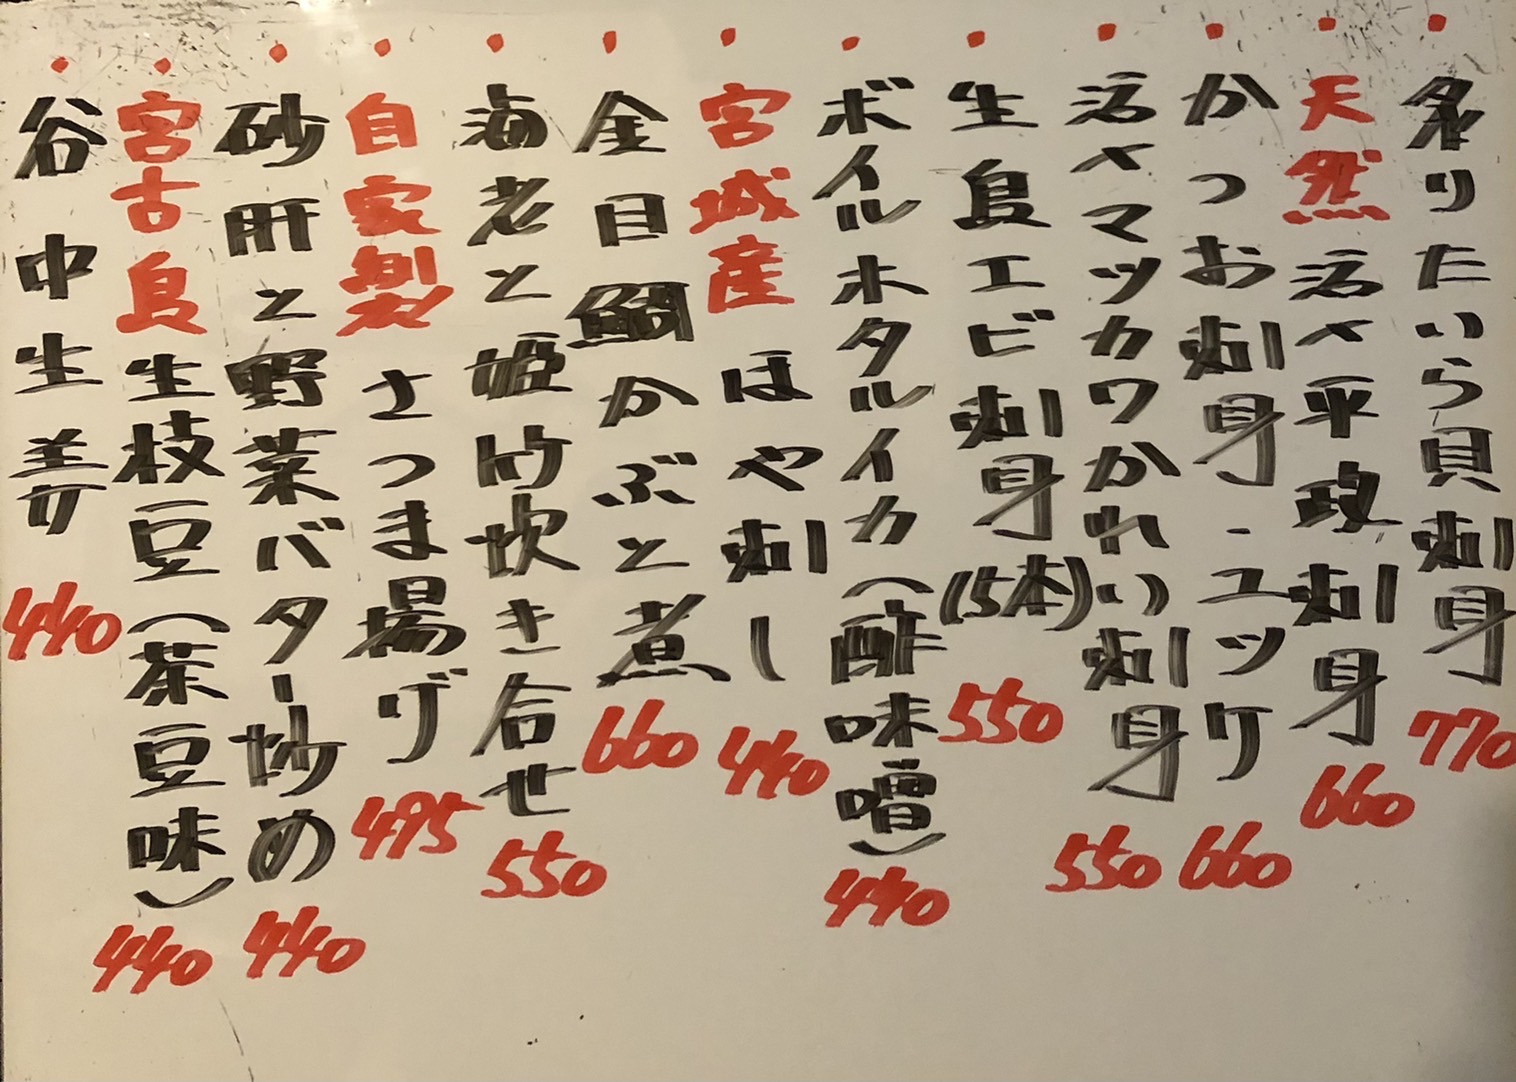 ・炙りたいら貝刺身 770
・天然活〆平政刺身 660
・かつお刺身・ユッケ 660
・活〆マツカワかれい刺身 550
・生島エビ刺身(5本) 550
・ボイルホタルイカ(酢味噌) 440
・宮城産ほや刺し 440
・金目鯛かぶと煮 660
・海老と姫竹炊き合せ 550
・自家製さつま揚げ 495
・砂肝と野菜バター炒め 440
・宮古島生枝豆(茶豆味) 440
・谷中生姜 440